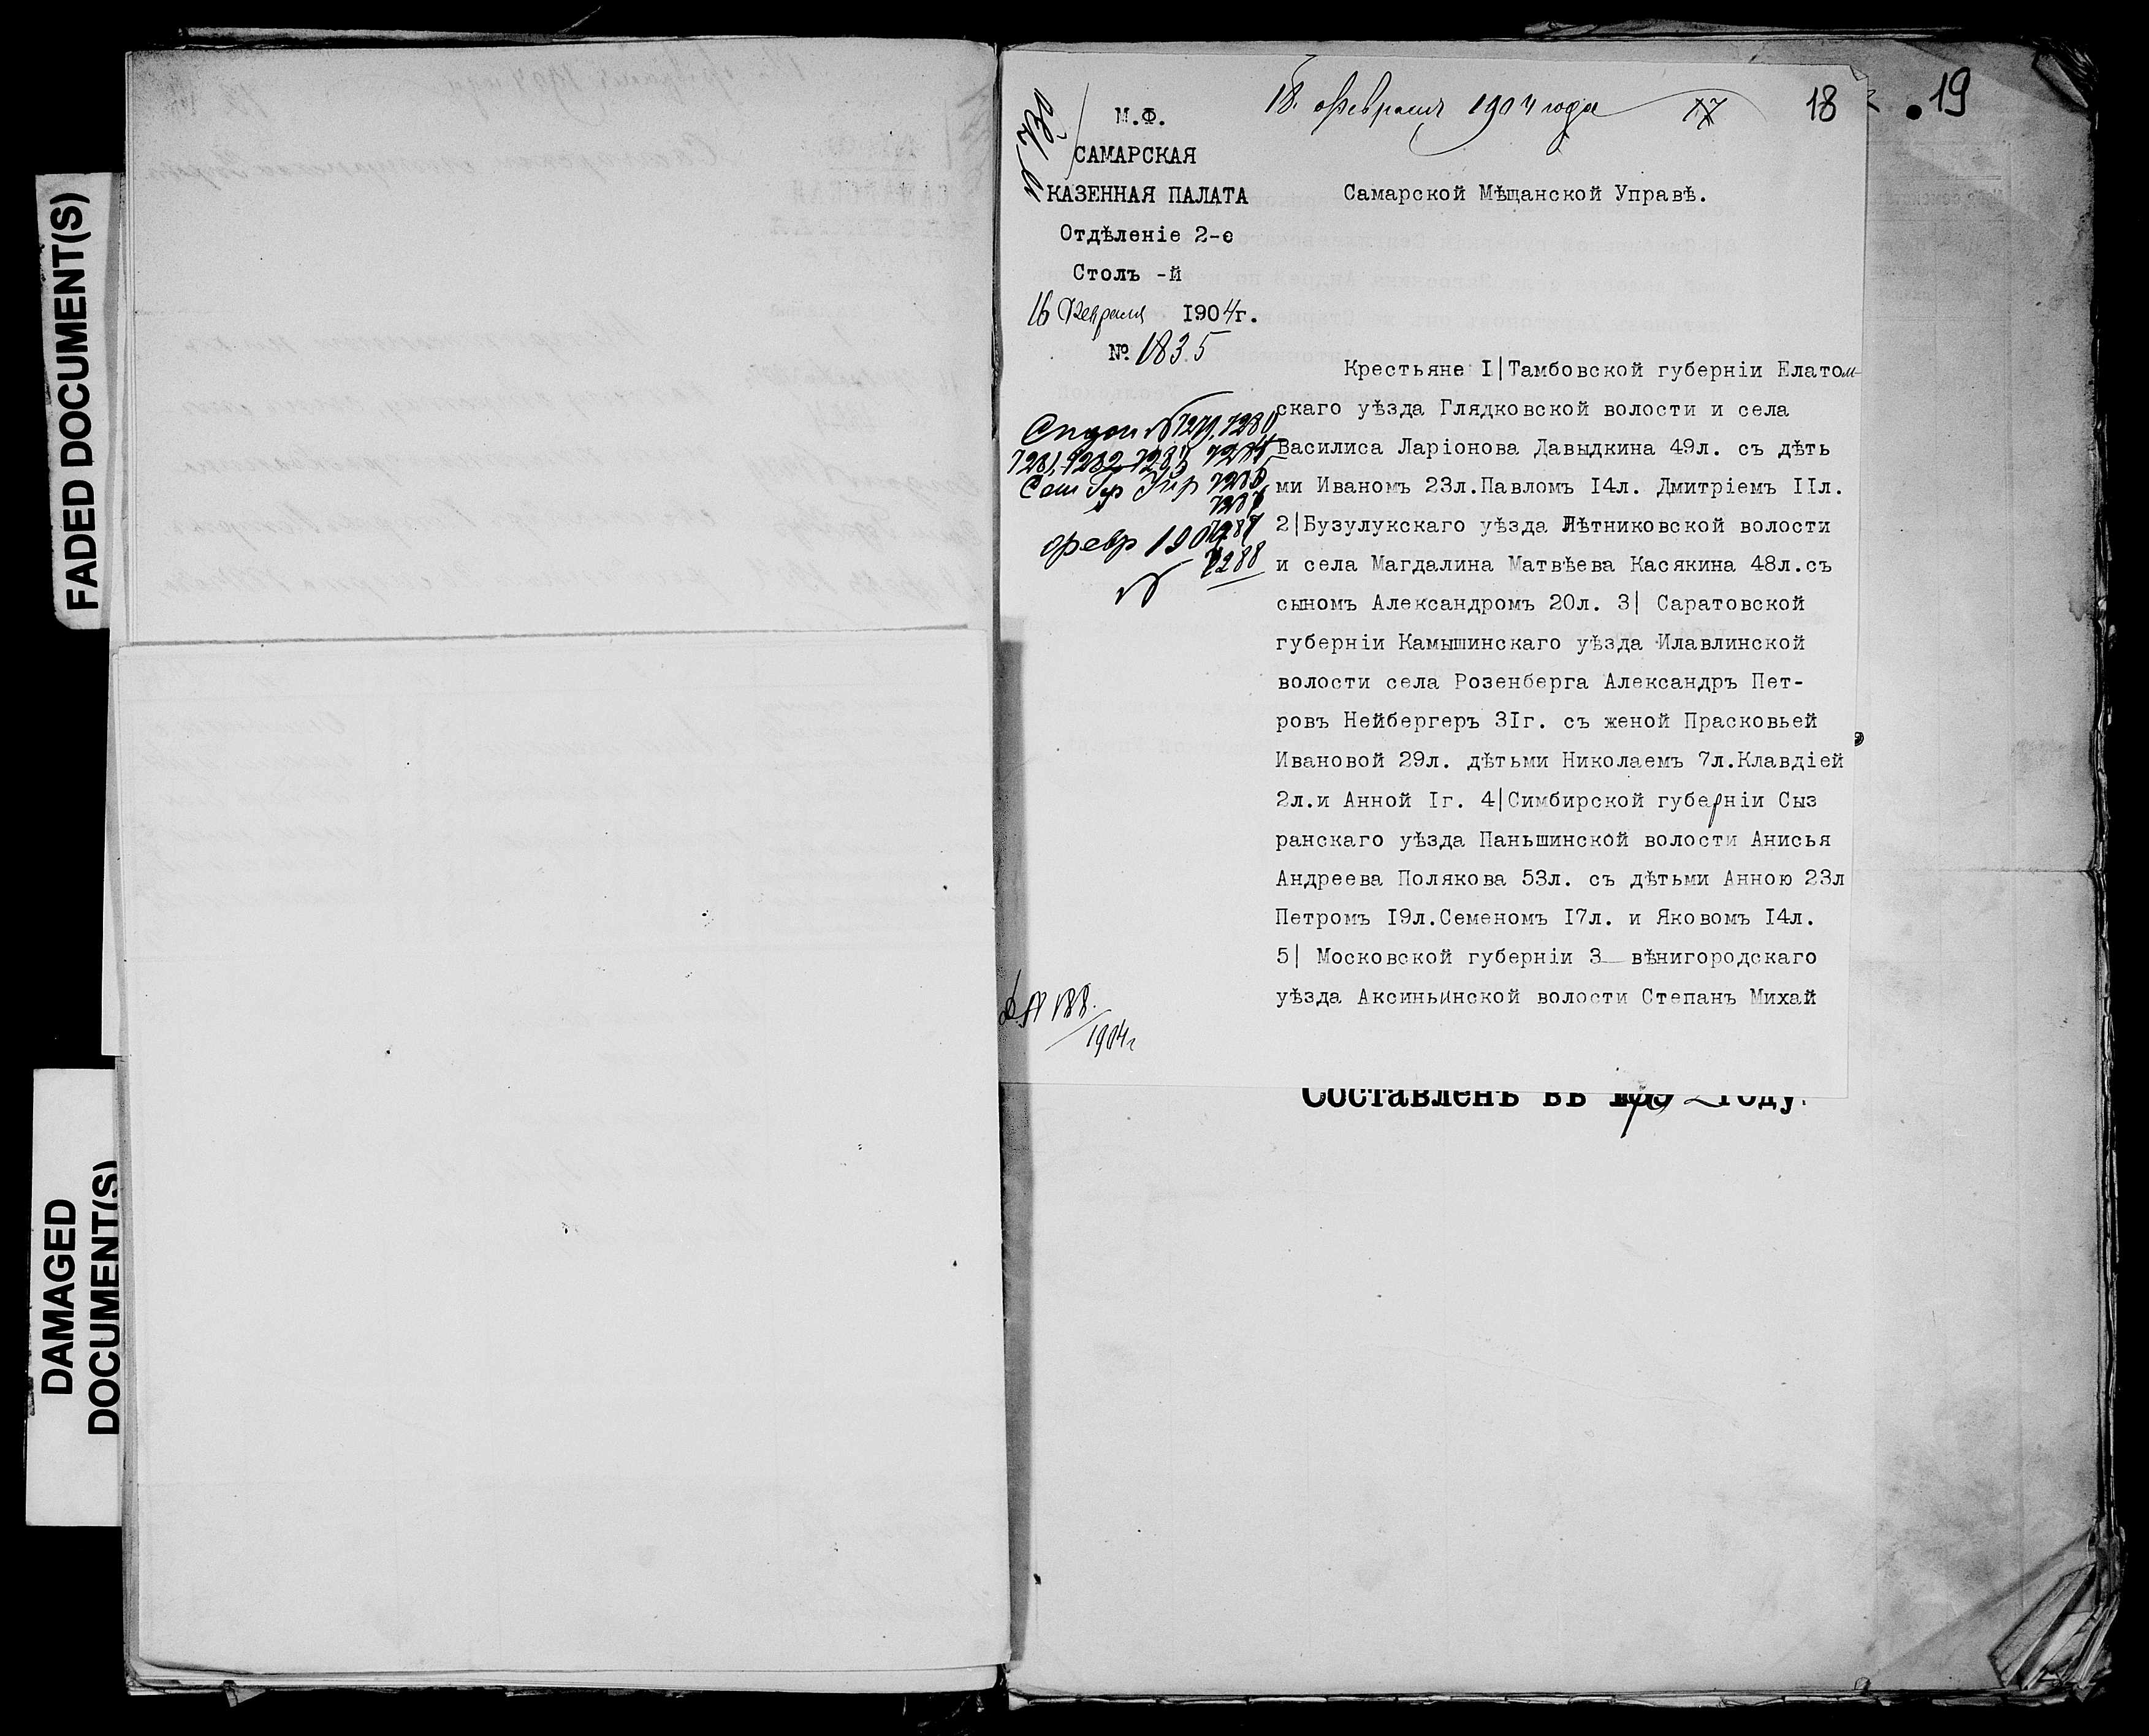 FADED DOCUMENT(S)
DAMAGED
DOCUMENT(S)
18 февраля 1904 года
17
18
19
М.Ф.
САМАРСКАЯ
КАЗЕННАЯ ПАЛАТА
Отдѣленіе 2-е
Столъ -й
16 Февраля 1904г.
№ 1835
Самарской Мѣщанской Управѣ.
Крестьяне I|Тамбовской губерніи Елатом-
скаго уѣзда Глядковской волости и села
Василиса Ларіонова Давыдкина 49л. съ дѣть
ми Иваномъ 23л.Павломъ I4л. Дмитріемъ IIл.
2|Бузулукскаго уѣзда Лѣтниковской волости
и села Магдалина Матвѣева Касякина 48л.съ
сыномъ Александромъ 20л. 3| Саратовской
губерніи Камышинскаго уѣзда Илавлинской
волости села Розенберга Александръ Пет-
ровъ Нейбергеръ 3Iг. съ женой Прасковьей
Ивановой 29л. дѣтьми Николаемъ 7л.Клавдіей
2л.и Анной Iг. 4|Симбирской губерніи Сыз
ранскаго уѣзда Паньшинской волости Анисья
Андреева Полякова 53л. съ дѣтьми Анною 23л
Петромъ I9л.Семеномъ I7л. и Яковомъ I4л.
5| Московской губерніи З вѣнигородскаго
уѣзда Аксиньинской волости Степанъ Михай
7279, 7280
7281, 7282
7288
февр 1904
188
1904г
Составленъ въ году.